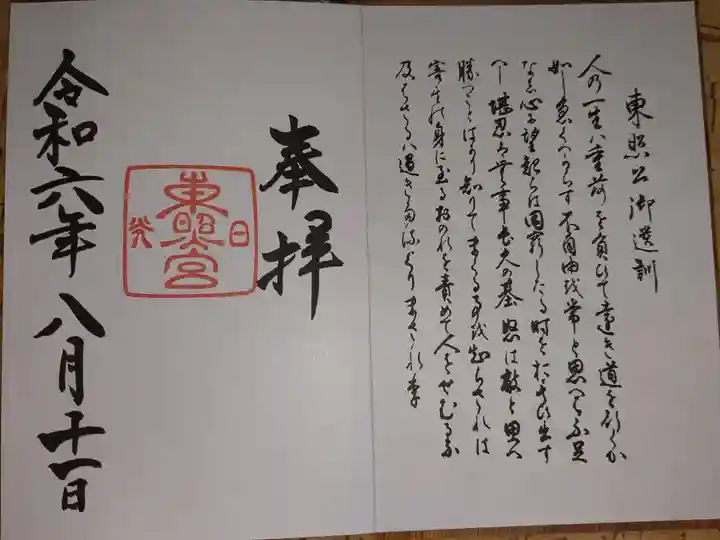 東照公御遺訓
人の一生ハ重荷を負いて遠き道を行くか
如し急くへからす不自由を常と思へハ不足
なし心に望起らは困窮したる時をおもひ出す
へし堪忍ハ無事長久の基怒は敵と思へ
勝つことはかり知りてまくる事を知らされは
害其の身に至るおのれを責めて人をせむるな
及はさるハ過きたるよりまされり
奉拝
東照宮
日光
令和六年八月十一日